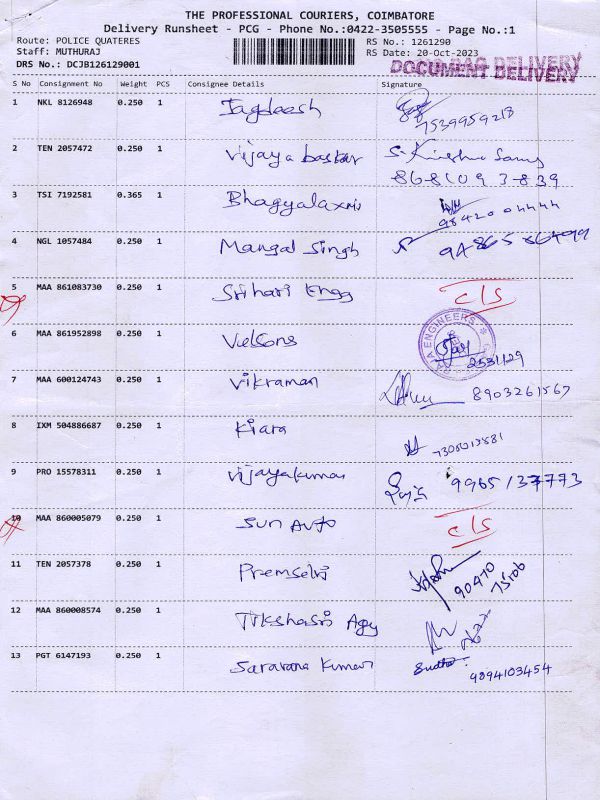 THE PROFESSIONAL COURIERS, COIMBATORE
Delivery Runsheet - PCG - Phone No.:0422-3505555 - Page No.:1
Route: POLICE QUATERES RS No.: 1261290
Staff: MUTHURAJ RS Date: 20-Oct-2023
DRS No.: DCJB126129001 DOCUMENT DELIVERY
S No Consignment No Weight PCS Consignee Details Signature
1 NKL 8126948 0.250 1 Jagdeesh
7539959218
2 TEN 2057472 0.250 1 Vijaya baskar
868109 3839
3 TSI 7192581 0.365 1 Bhagyalaxmi
98420 04444
4 NGL 1057484 0.250 1 Mangal Singh
5 MAA 861083730 0.250 1 Srihari Engg C/S
6 MAA 861952898 0.250 1 Velsons RAJA ENGINEERS
2531129
7 MAA 600124743 0.250 1 Vikraman 8903261567
8 IXM 504886687 0.250 1 Kiara
9 PRO 15578311 0.250 1 Vijayakumar 9965137773
10 MAA 860005079 0.250 1 Sun Auto C/S
11 TEN 2057378 0.250 1 Premselvi
90470
75106
12 MAA 860008574 0.250 1 Tikshasri Agy
13 PGT 6147193 0.250 1 Saravana Kumar Sudha
9894103454